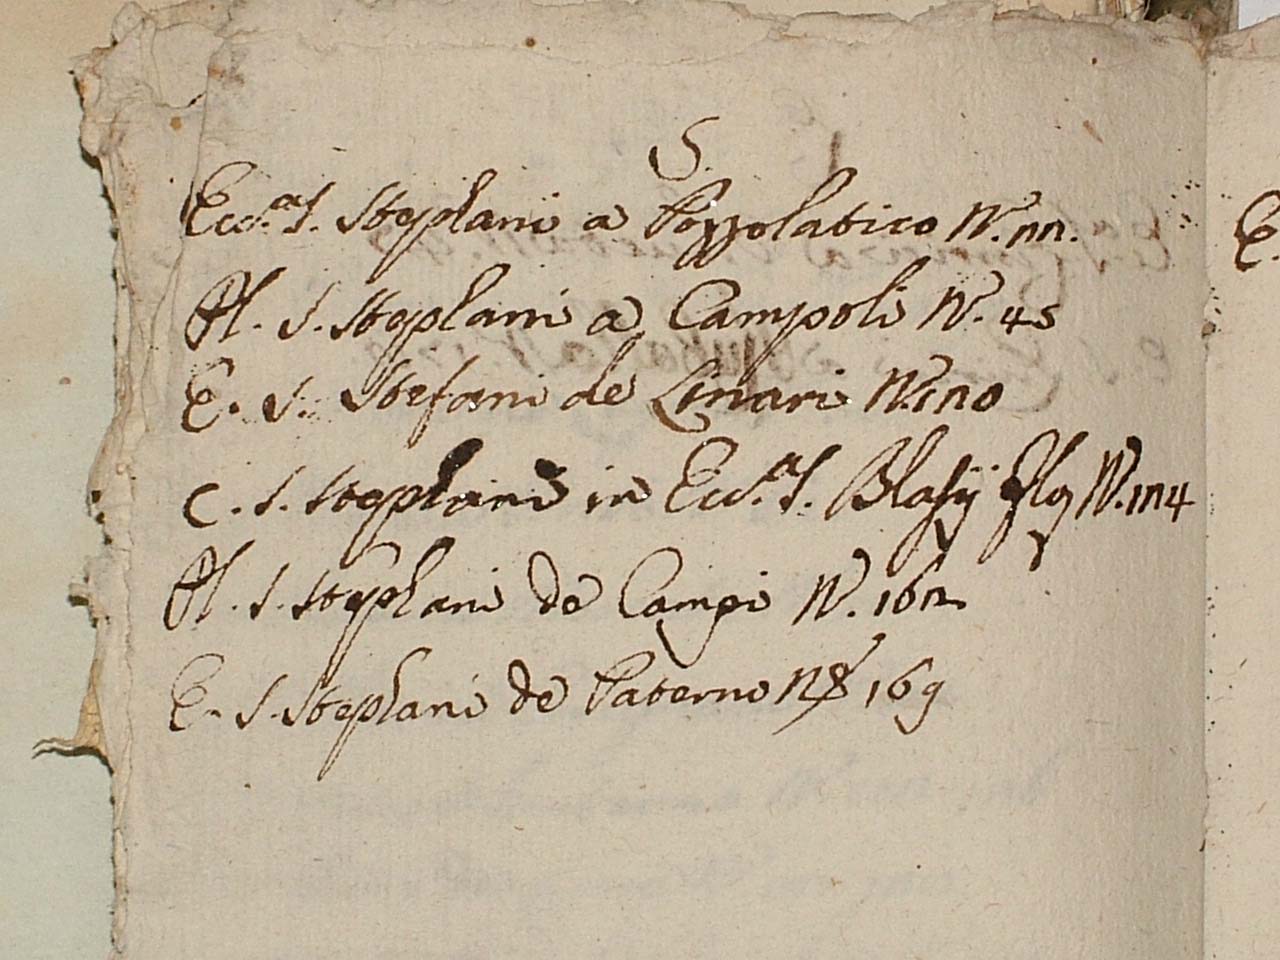 S.
Eccl.a S. Stephani a Pozzolatico N. 22.
Pl. S. Stephani a Campoli N. 45
E. S. Stefani de Linari N. 120
C. S. Stephani in Eccl.a S. Blasij Flo N. 124
Pl. S. Stephani de Campi N. 162
E. S. Stephani de Paterno N 169
E.